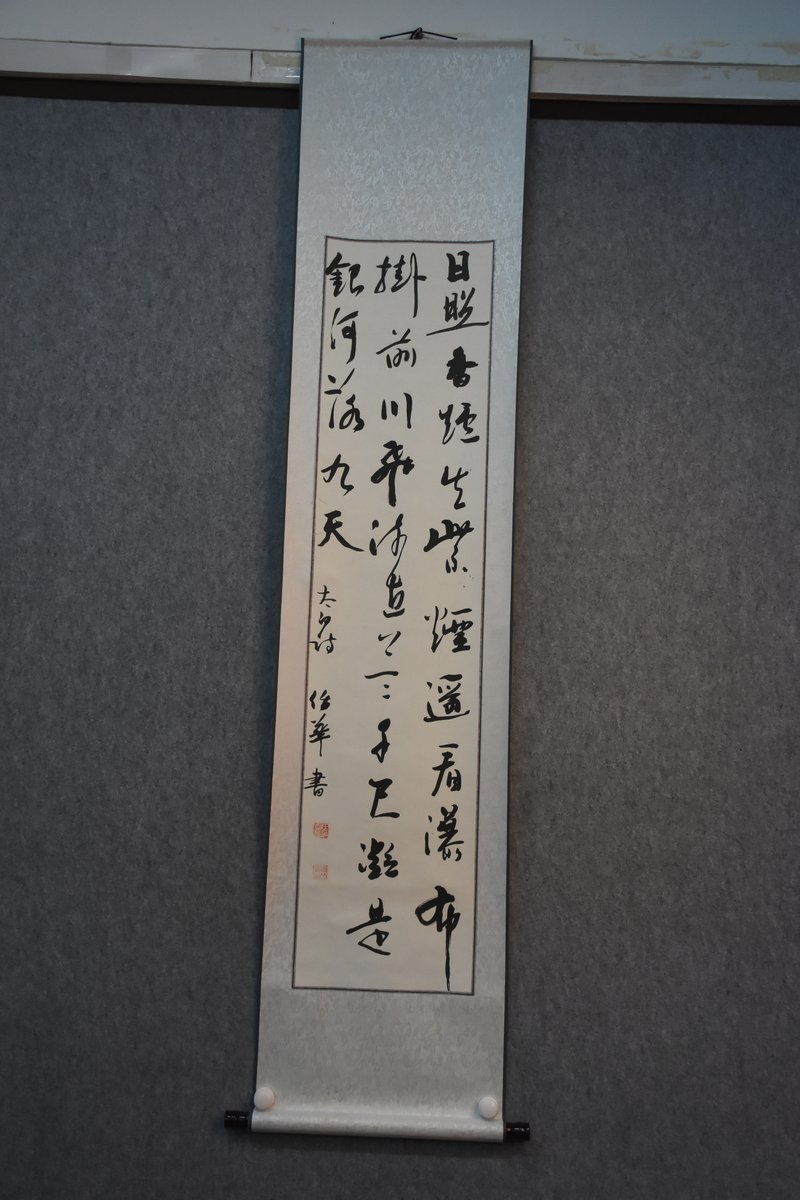 日照香爐生紫煙遙看瀑布
掛前川飛流直下三千尺凝是
銀河落九天
太白詩
華書